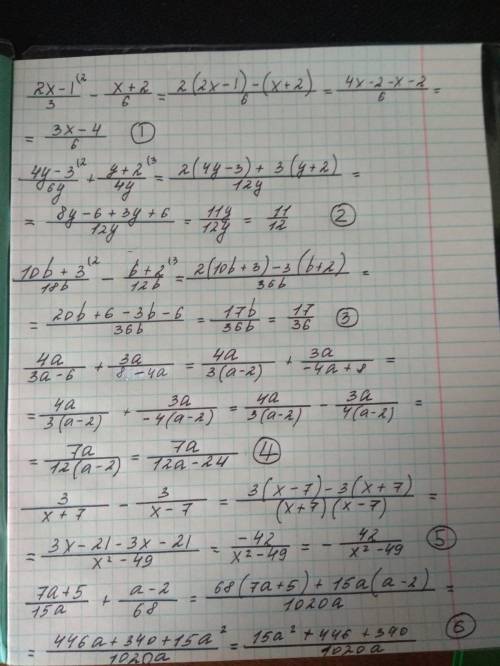 (2x-1)/3 ⁽² - (x+2)/6 = (2(2x-1)-(x+2))/6 = (4x-2-x-2)/6 =
= (3x-4)/6 ①
(4y-3)/6y ⁽² + (y+2)/4y ⁽³ = (2(4y-3)+3(y+2))/12y =
= (8y-6+3y+6)/12y = 11y/12y = 11/12 ②
(10b+3)/18b ⁽² - (b+2)/12b ⁽³ = (2(10b+3)-3(b+2))/36b =
= (20b+6-3b-6)/36b = 17b/36b = 17/36 ③
4a/(3a-6) + 3a/(8-4a) = 4a/(3(a-2)) + 3a/(-4a+8) =
= 4a/(3(a-2)) + 3a/(-4(a-2)) = 4a/(3(a-2)) - 3a/(4(a-2)) =
= 7a/(12(a-2)) = 7a/(12a-24) ④
3/(x+7) - 3/(x-7) = (3(x-7)-3(x+7))/((x+7)(x-7)) =
= (3x-21-3x-21)/(x²-49) = -42/(x²-49) = - 42/(x²-49) ⑤
(7a+5)/15a + (a-2)/68 = (68(7a+5)+15a(a-2))/1020a =
= (446a+340+15a²)/1020a = (15a²+446+340)/1020a ⑥